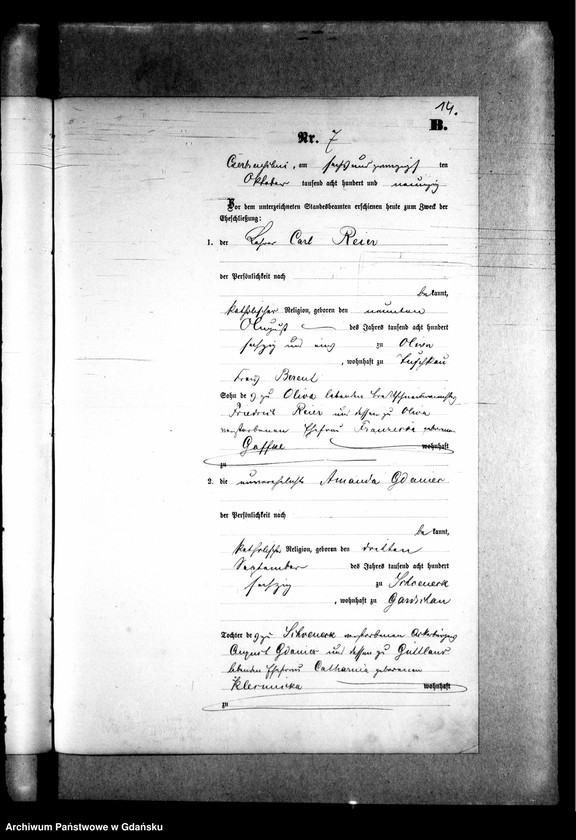 14.
B.
Nr. 7
am sechsundzwanzigsten ten
Oktober tausend acht hundert und neunzig
Vor dem unterzeichneten Standesbeamten erschienen heute zum Zweck der
Eheschließung:
1. der Lehrer Carl Reier
der Persönlichkeit nach
be kannt,
katholischer Religion, geboren den neunten
August des Jahres tausend acht hundert
sechzig und eins zu Oliva
, wohnhaft zu
Kreis Berent
Sohn des zu Oliva lebenden
Friedrich Reier und dessen zu Oliva
verstorbenen Ehefrau Franziska geborenen
wohnhaft
zu
2. die unverehelichte Amanda Gdanier
der Persönlichkeit nach
be kannt,
katholischer Religion, geboren den dritten
September des Jahres tausend acht hundert
sechzig zu Schoeneck
, wohnhaft zu Gardschau
Tochter des zu Schoeneck verstorbenen Ackerbürgers
August Gdanier und dessen zu
lebenden Ehefrau Catharina geborenen
wohnhaft
zu
Archiwum Państwowe w Gdańsku